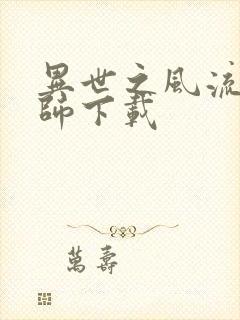 異世之風流
師下載
萬壽